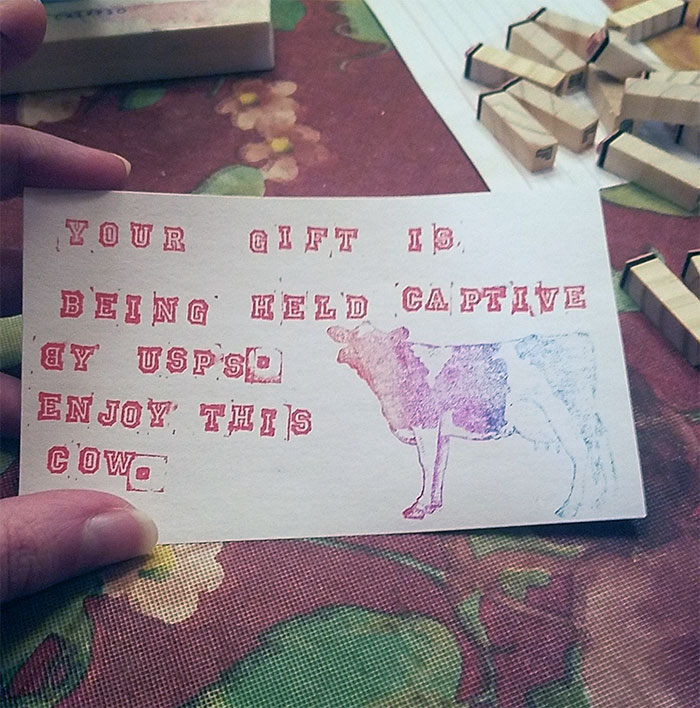 YOUR GIFT IS
BEING HELD CAPTIVE
BY USPS.
ENJOY THIS
COW.